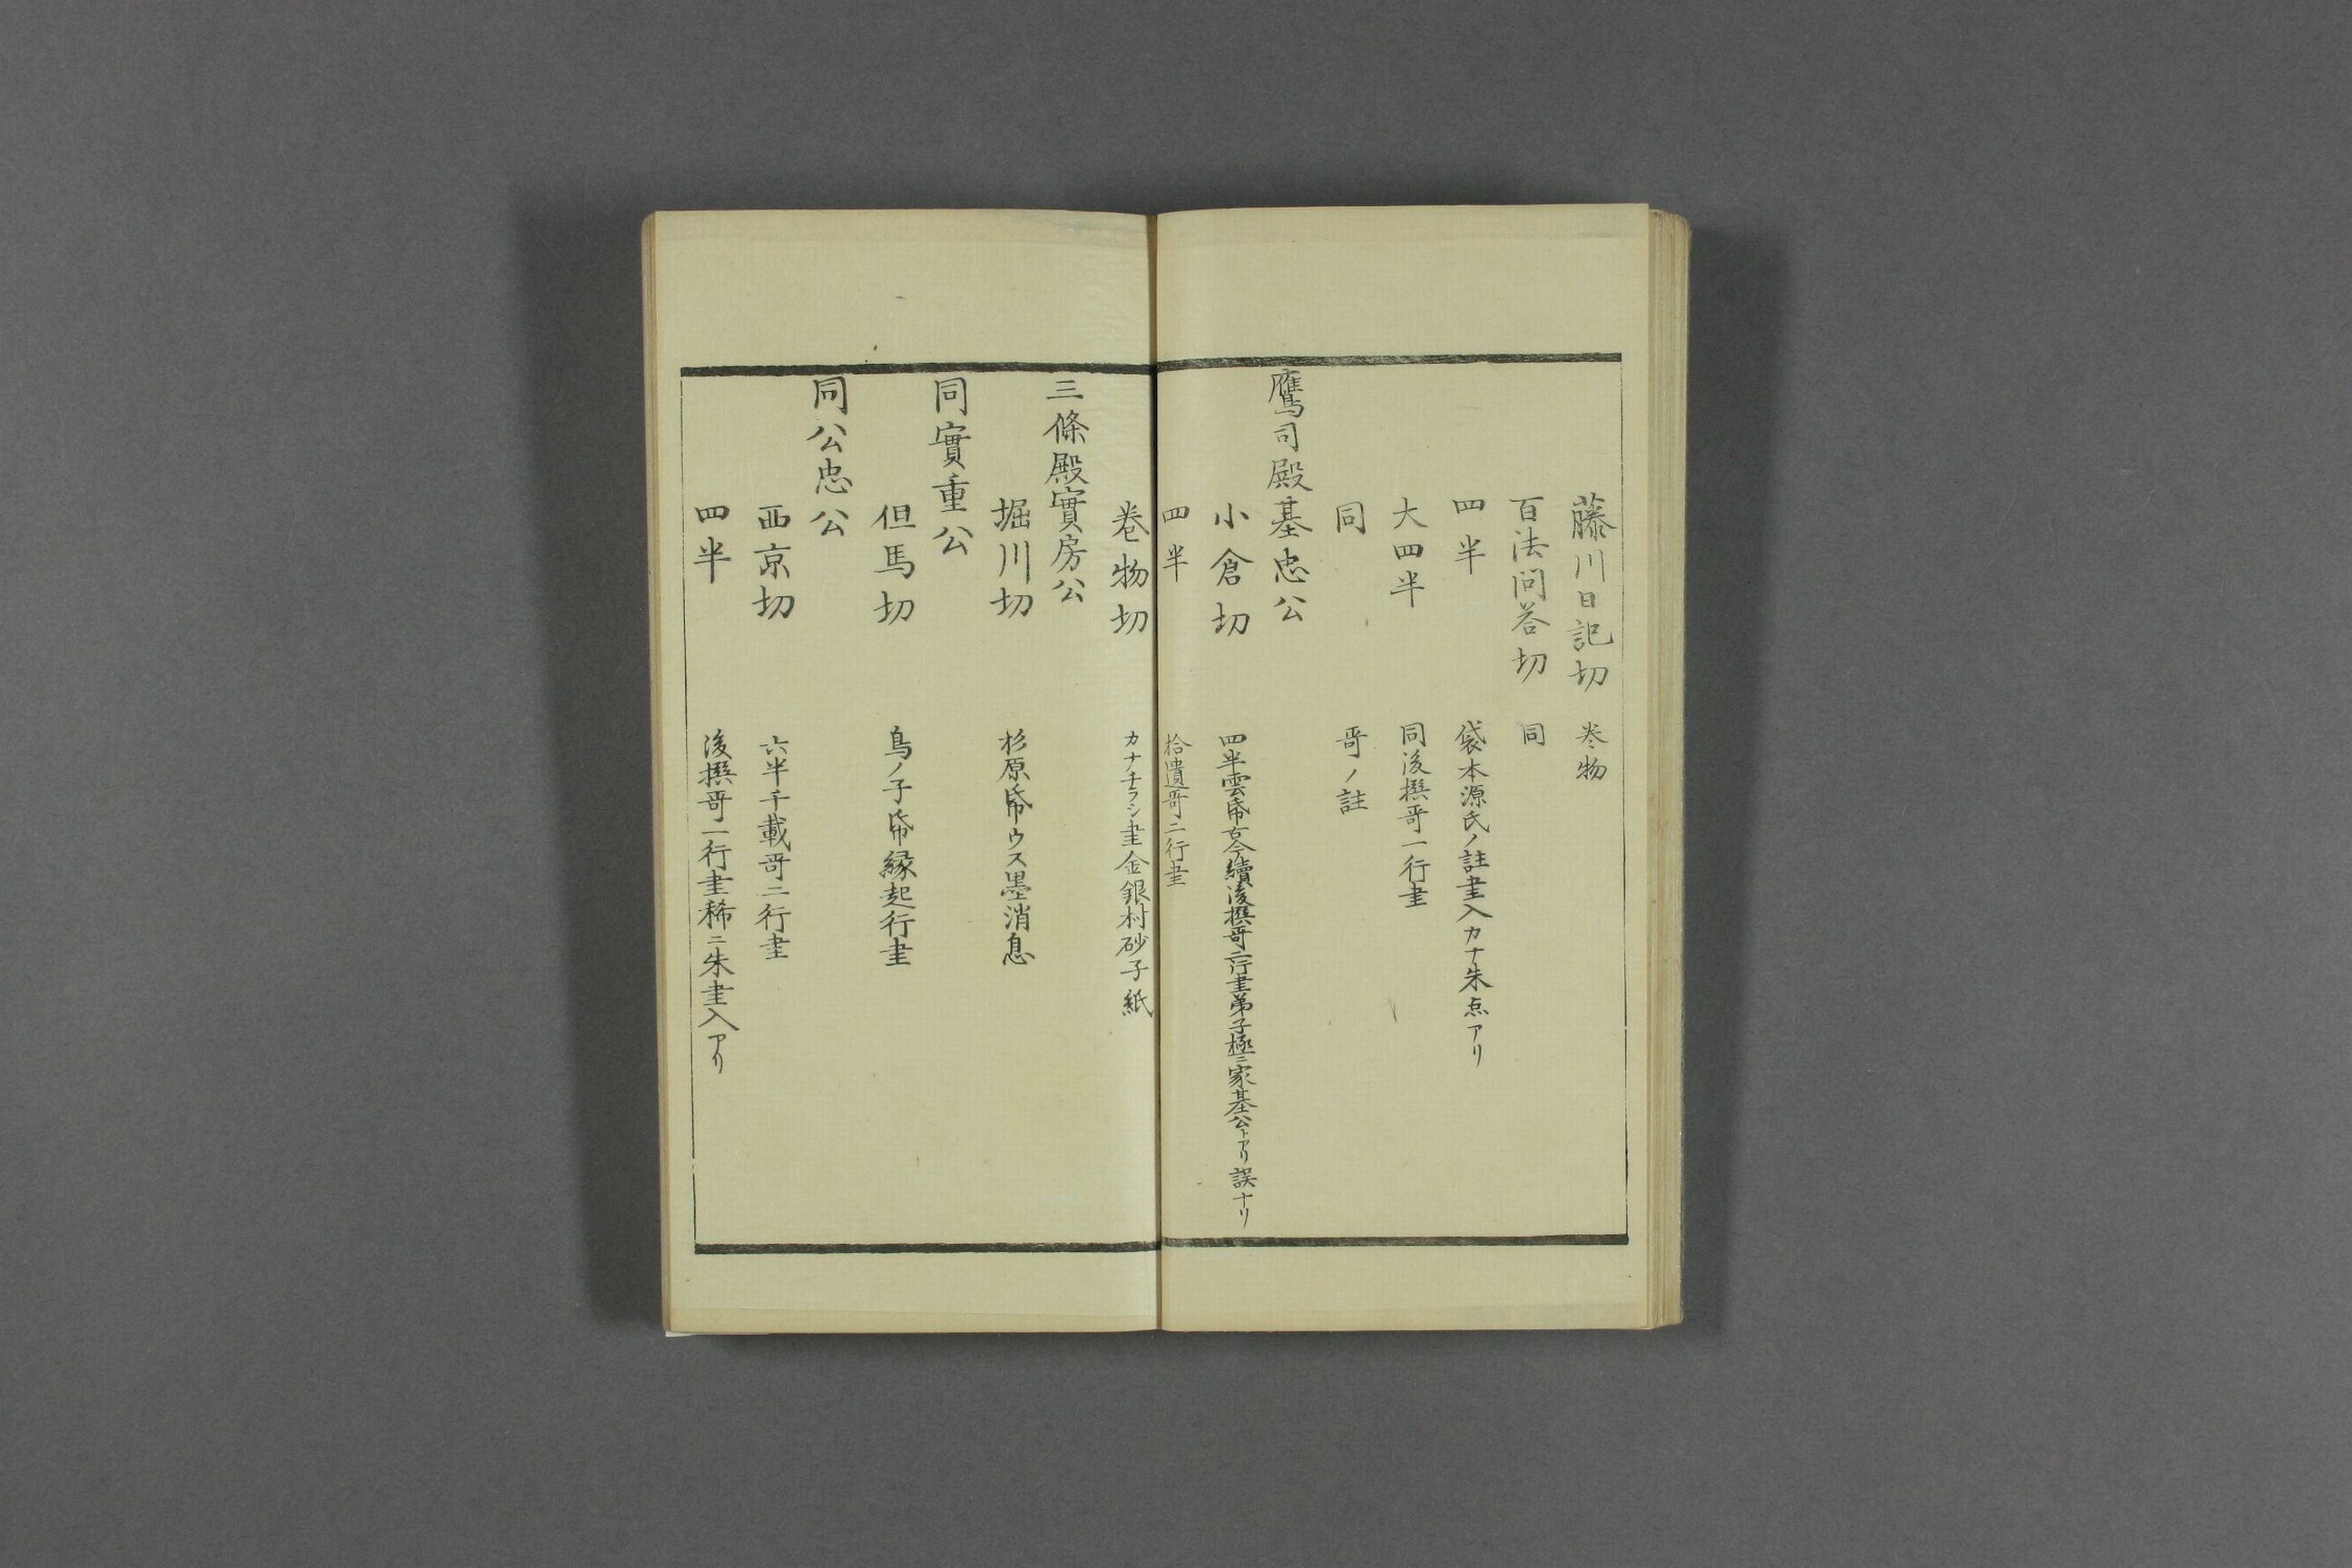 藤川日記切 巻物
百法问荅切 同
四半 袋本源氏ノ註書入カナ朱点アリ
大四半 同後撰哥一行書
同 哥ノ註
鷹司殿基忠公
小倉切 四半雲帋古今續後撰哥二行書弟子極ニ家基公トアリ誤ナリ
四半 拾遺哥二行書
巻物切 カナチラシ書金銀村砂子紙
三條殿實房公
堀川切 杉原帋ウス墨消息
同實重公
但馬切 鳥ノ子帋縁起行書
同公忠公
西京切 六半千載哥二行書
四半 後撰哥一行書稀ニ朱書入アリ